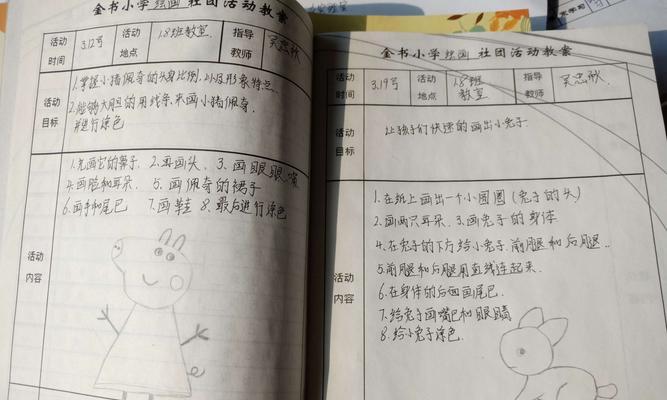 金书小学绘画社团活动教案
活动时间 3.12号 活动地点 1.8班教室 指导教师 吴忠欣
活动目标
1.掌握小猪佩奇的头身比例,以及形象特点
2.能够大胆的用线条来画小猪佩奇.
并进行涂色
活动内容
1.先画它的鼻子. 2.再画头. 3.画眼眼,嘴
4.画脸和耳朵. 5.画佩奇的裙子
6.画手和尾巴 7.画鞋 8.最后进行涂色
金书小学绘画社团活动教案
活动时间 3.19号 活动地点 1.8班教室 指导教师 吴忠欣
活动目标
让孩子们快速的画出小兔子
活动内容
1.在纸上画出一个小圆圈(兔子的头)
2.画两只耳朵. 3.画兔子的身体
4.在兔子的下方给小兔子.前腿和后腿..
5.前腿和后腿用直线连起来.
6.在身体的后面画尾巴
7.给兔子画嘴巴和眼睛
8.给小兔子涂色.